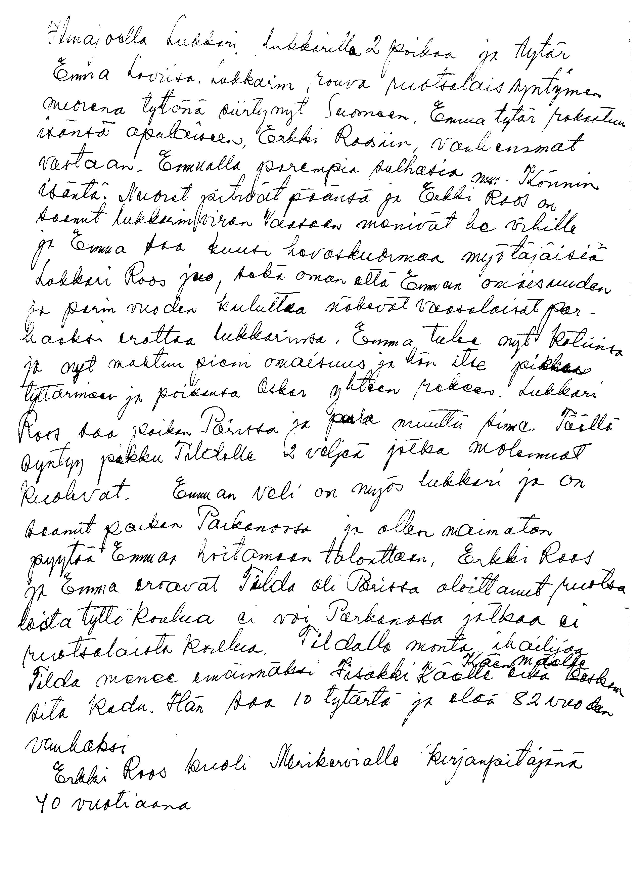 Ilmajoella Lukkari. Lukkarilla 2 poikaa ja tytär
Emma Loviisa. Lukkarin rouva ruotsalais syntyinen
nuorena tyttönä siirtynyt Suomeen. Emma tytär rakastuu
isänsä apulaiseen, Erkki Roosiin, vanhemmat
vastaan. Emmalla parempia sulhasia m.m. Könnin
isäntä. Nuoret pitävät päänsä ja Erkki Roos on
saanut lukkarinviran Vaasaan menivät he vihille
ja Emma saa kuusi hevoskuormaa myötäjäisiä
Lukkari Roos juo, sekä oman että Emman omaisuuden
ja parin vuoden kuluttua näkevät vaasalaiset par-
haaksi erottaa lukkarinsa. Emma tulee nyt kotiinsa
ja nyt mahtuu pieni omaisuus ja hän itse pikkue
tyttärineen ja poikansa Oskar yhteen rekeen. Lukkari
Roos saa paikan Porissa ja muuttu sinne. Täällä
syntyy pikku Tildalle 2 veljeä jotka molemmat
kuolevat. Emman veli on myös lukkari ja on
saanut paikan Parkanossa ja ollen naimaton
pyytää Emman hoitamaan talouttaan. Erkki Roos
ja Emma eroavat Tilda oli Porissa aloittanut ruotsa
laista tyttökoulua ei voi Parkanossa jatkaa ei
ruotsalaista koulua. Tildalla monta ihailijaa
Tilda menee emännäksi Iisakki Käelle eikä koskaan
sitä kadu. Hän saa 10 tytärtä ja elää 82 vuoden
vanhaksi
Erkki Roos kuoli Merikarvialla kirjanpitäjänä
40 vuotiaana